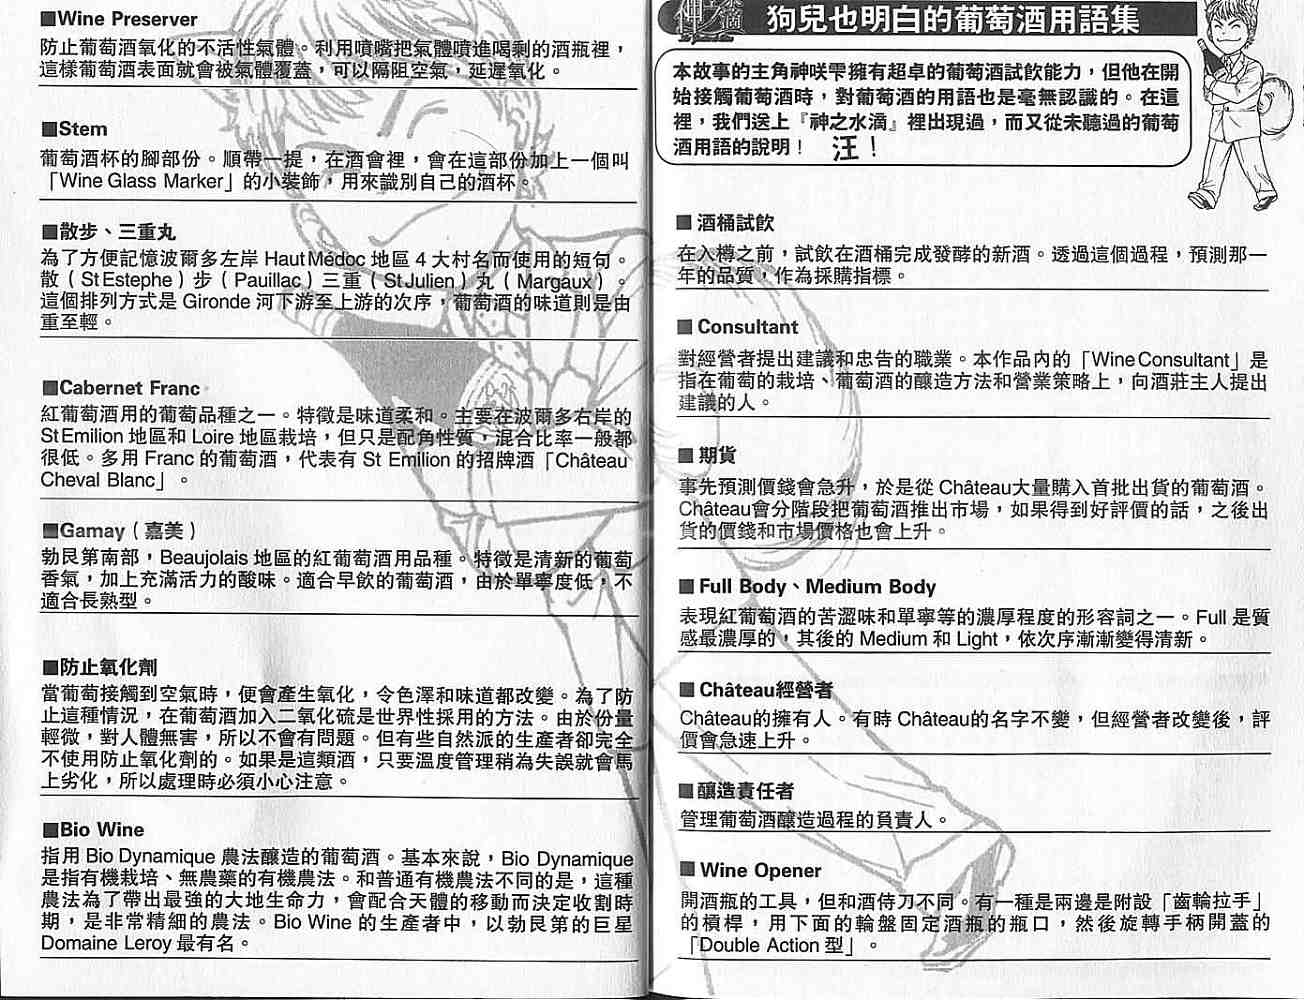 神之水滴
狗兒也明白的葡萄酒用語集
本故事的主角神咲雫擁有超卓的葡萄酒試飲能力，但他在開
始接觸葡萄酒時，對葡萄酒的用語也是毫無認識的。在這
裡，我們送上『神之水滴』裡出現過，而又從未聽過的葡萄
酒用語的說明！ 汪！
■ 酒桶試飲
在入樽之前，試飲在酒桶完成發酵的新酒。透過這個過程，預測那一
年的品質，作為採購指標。
■ Consultant
對經營者提出建議和忠告的職業。本作品內的「Wine Consultant」是
指在葡萄的栽培、葡萄酒的釀造方法和營業策略上，向酒莊主人提出
建議的人。
■ 期貨
事先預測價錢會急升，於是從 Château大量購入首批出貨的葡萄酒。
Château會分階段把葡萄酒推出市場，如果得到好評價的話，之後出
貨的價錢和市場價格也會上升。
■ Full Body、Medium Body
表現紅葡萄酒的苦澀味和單寧等的濃厚程度的形容詞之一。Full 是質
感最濃厚的，其後的 Medium 和 Light，依次序漸漸變得清新。
■ Château經營者
Château的擁有人。有時 Château的名字不變，但經營者改變後，評
價會急速上升。
■ 釀造責任者
管理葡萄酒釀造過程的負責人。
■ Wine Opener
開酒瓶的工具，但和酒侍刀不同。有一種是兩邊是附設「齒輪拉手」
的槓桿，用下面的輪盤固定酒瓶的瓶口，然後旋轉手柄開蓋的
「Double Action 型」。
■Wine Preserver
防止葡萄酒氧化的不活性氣體。利用噴嘴把氣體噴進喝剩的酒瓶裡，
這樣葡萄酒表面就會被氣體覆蓋，可以隔阻空氣，延遲氧化。
■Stem
葡萄酒杯的腳部份。順帶一提，在酒會裡，會在這部份加上一個叫
「Wine Glass Marker」的小裝飾，用來識別自己的酒杯。
■散步、三重丸
為了方便記憶波爾多左岸 Haut Médoc 地區 4 大村名而使用的短句。
散（St Estephe）步（Pauillac）三重（St Julien）丸（Margaux）。
這個排列方式是 Gironde 河下游至上游的次序，葡萄酒的味道則是由
重至輕。
■Cabernet Franc
紅葡萄酒用的葡萄品種之一。特徵是味道柔和。主要在波爾多右岸的
St Emilion 地區和 Loire 地區栽培，但只是配角性質，混合比率一般都
很低。多用 Franc 的葡萄酒，代表有 St Emilion 的招牌酒「Château
Cheval Blanc」。
■Gamay（嘉美）
勃艮第南部，Beaujolais 地區的紅葡萄酒用品種。特徵是清新的葡萄
香氣，加上充滿活力的酸味。適合早飲的葡萄酒，由於單寧度低，不
適合長熟型。
■防止氧化劑
當葡萄接觸到空氣時，便會產生氧化，令色澤和味道都改變。為了防
止這種情況，在葡萄酒加入二氧化硫是世界性採用的方法。由於份量
輕微，對人體無害，所以不會有問題。但有些自然派的生產者卻完全
不使用防止氧化劑的。如果是這類酒，只要溫度管理稍為失誤就會馬
上劣化，所以處理時必須小心注意。
■Bio Wine
指用 Bio Dynamique 農法釀造的葡萄酒。基本來說，Bio Dynamique
是指有機栽培、無農藥的有機農法。和普通有機農法不同的是，這種
農法為了帶出最強的大地生命力，會配合天體的移動而決定收割時
期，是非常精細的農法。Bio Wine 的生產者中，以勃艮第的巨星
Domaine Leroy 最有名。